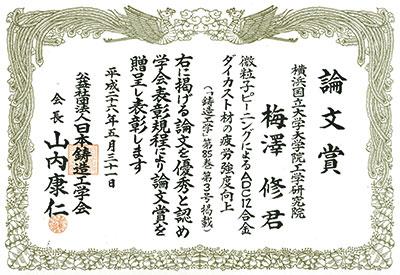 論文賞
横浜国立大学大学院工学研究院
梅澤 修君
微粒子ピーニングによるADC12合金
ダイカスト材の疲労強度向上
(「鋳造工学」第85巻第3号掲載)
右に掲げる論文を優秀と認め
学会表彰規程により論文賞を
贈呈し表彰します
平成二十六年五月三十一日
公益社団法人日本鋳造工学会
会長 山内康仁